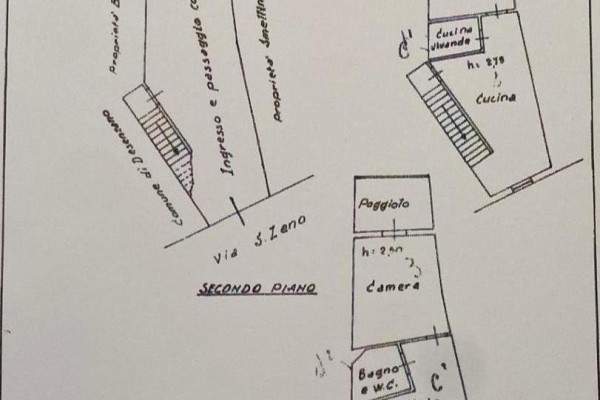 Proprietà B
Ingresso e passaggio co
Proprietà Smeltin
Comune di Desenzano
Via S. Zeno
SECONDO PIANO
Cucina
vivanda
h= 2,75
Cucina
Poggiolo
h= 2,50
Camera
Bagno
e W.C.